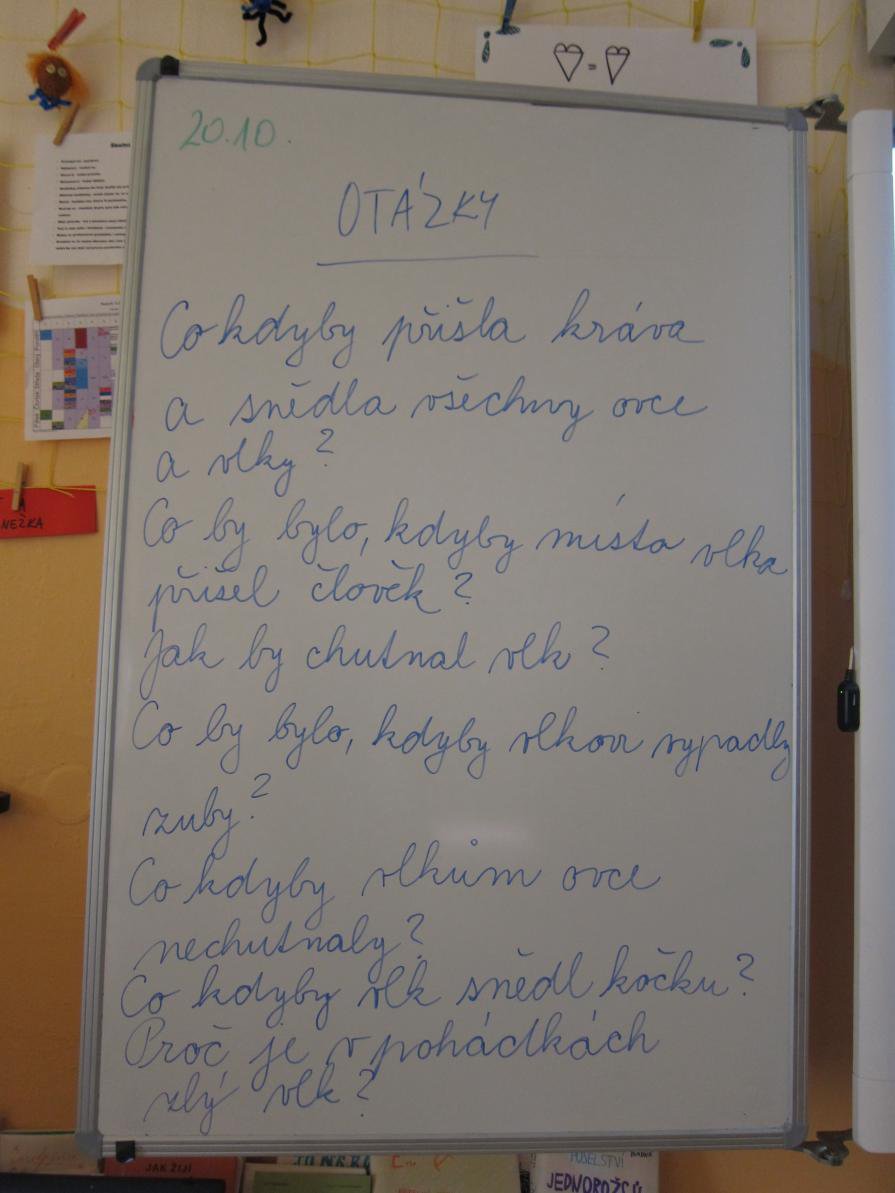 20.10.
OTÁZKY
Co kdyby přišla kráva
a snědla všechny ovce
a vlky?
Co by bylo, kdyby místo vlka
přišel člověk?
Jak by chutnal vlk?
Co by bylo, kdyby vlkovi vypadly
zuby?
Co kdyby vlkům ovce
nechutnaly?
Co kdyby vlk snědl kočku?
Proč je v pohádkách
zlý vlk?
NEŽKA
JAK ŽIJÍ
POSELSTVÍ
JEDNOROŽCŮ